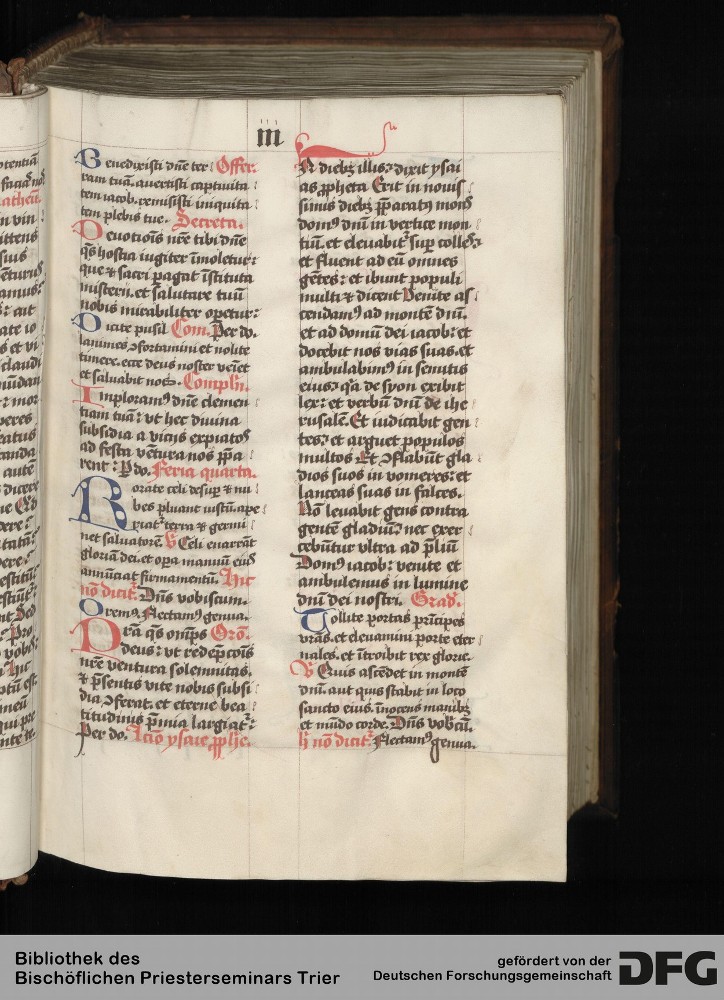 iii
Benedixisti dn̄e ter Offer.
ram tuā. auertisti captiuita
tem iacob. remisisti iniquita
tem plebis tue. Secreta.
Deuotiōis nr̄e tibi dn̄e
qs̄ hostia iugiter īmoletur:
que & sacri ꝑagat īstituta
misterii. et salutare tuū
nobis mirabiliter opetur:
Dicite pusil Com. Per do.
lanimes ↄfortamini et nolite
timere. ecce deus noster veīet
et saluabit nos. Compln̄.
Imploramꝰ dn̄e clemen
tiam tuā: vt hec diuina
subsidia a viciis expiatos
ad festa vētura nos p̄pa
rent: P do. Feria quarta.
Rorate celi desuꝑ & nu
bes pluant iustū. aꝑe
riatᷣ terra & germi
net saluatorē. V Celi enarrāt
gloriam dei. et oꝑa manuū eiꝰ
annūciat firmamentū. Hic
nō dicitᷣ. Dn̄s vobiscum.
Oremꝰ. Flectamꝰ genua.
Pr̄a qs̄ omīps Orō.
deus: vt redēpcōis
nr̄e ventura solemnitas.
& p̄sentis vite nobis subsi
dia ↄferat. et eterne bea
titudinis p̄mia largiatᷣ:
Per do. Lcīo ysaie ꝓphe.
In diebꝫ illis: dixit ysai
as ꝓpheta Erit in nouis
simis diebꝫ p̄paratꝰ mons
domꝰ dn̄i in vertice mon
tiū. et eleuabitᷣ suꝑ colles:
et fluent ad eū omnes
gētes: et ibunt populi
multi & dicent Venite as
cendamꝰ ad montē dn̄i.
et ad domū dei iacob: et
docebit nos vias suas. et
ambulabimꝰ in semitis
eius: qa de syon exibit
lex: et verbū dn̄i de ihe
rusalē. Et iudicabit gen
tes: et arguet populos
multos Et ↄflabūt gla
dios suos in vomeres: et
lanceas suas in falces.
Nō leuabit gens contra
gentē gladiū: nec exer
cebūtur vltra ad p̄liū
Domꝰ iacob: venite et
ambulemus in lumine
dn̄i dei nostri. Grad.
Tollite portas prīcipes
vras. et eleuamini porte eter
nales. et ītroibit rex glorie.
V Quis ascēdet in montē
dn̄i. aut quis stabit in loco
sancto eius. īnocens manibꝫ
et mūdo corde. Dn̄s vobcū.
h nō dicitᷣ. Flectamꝰ genua.
Bibliothek des
Bischöflichen Priesterseminars Trier
gefördert von der
Deutschen Forschungsgemeinschaft
DFG